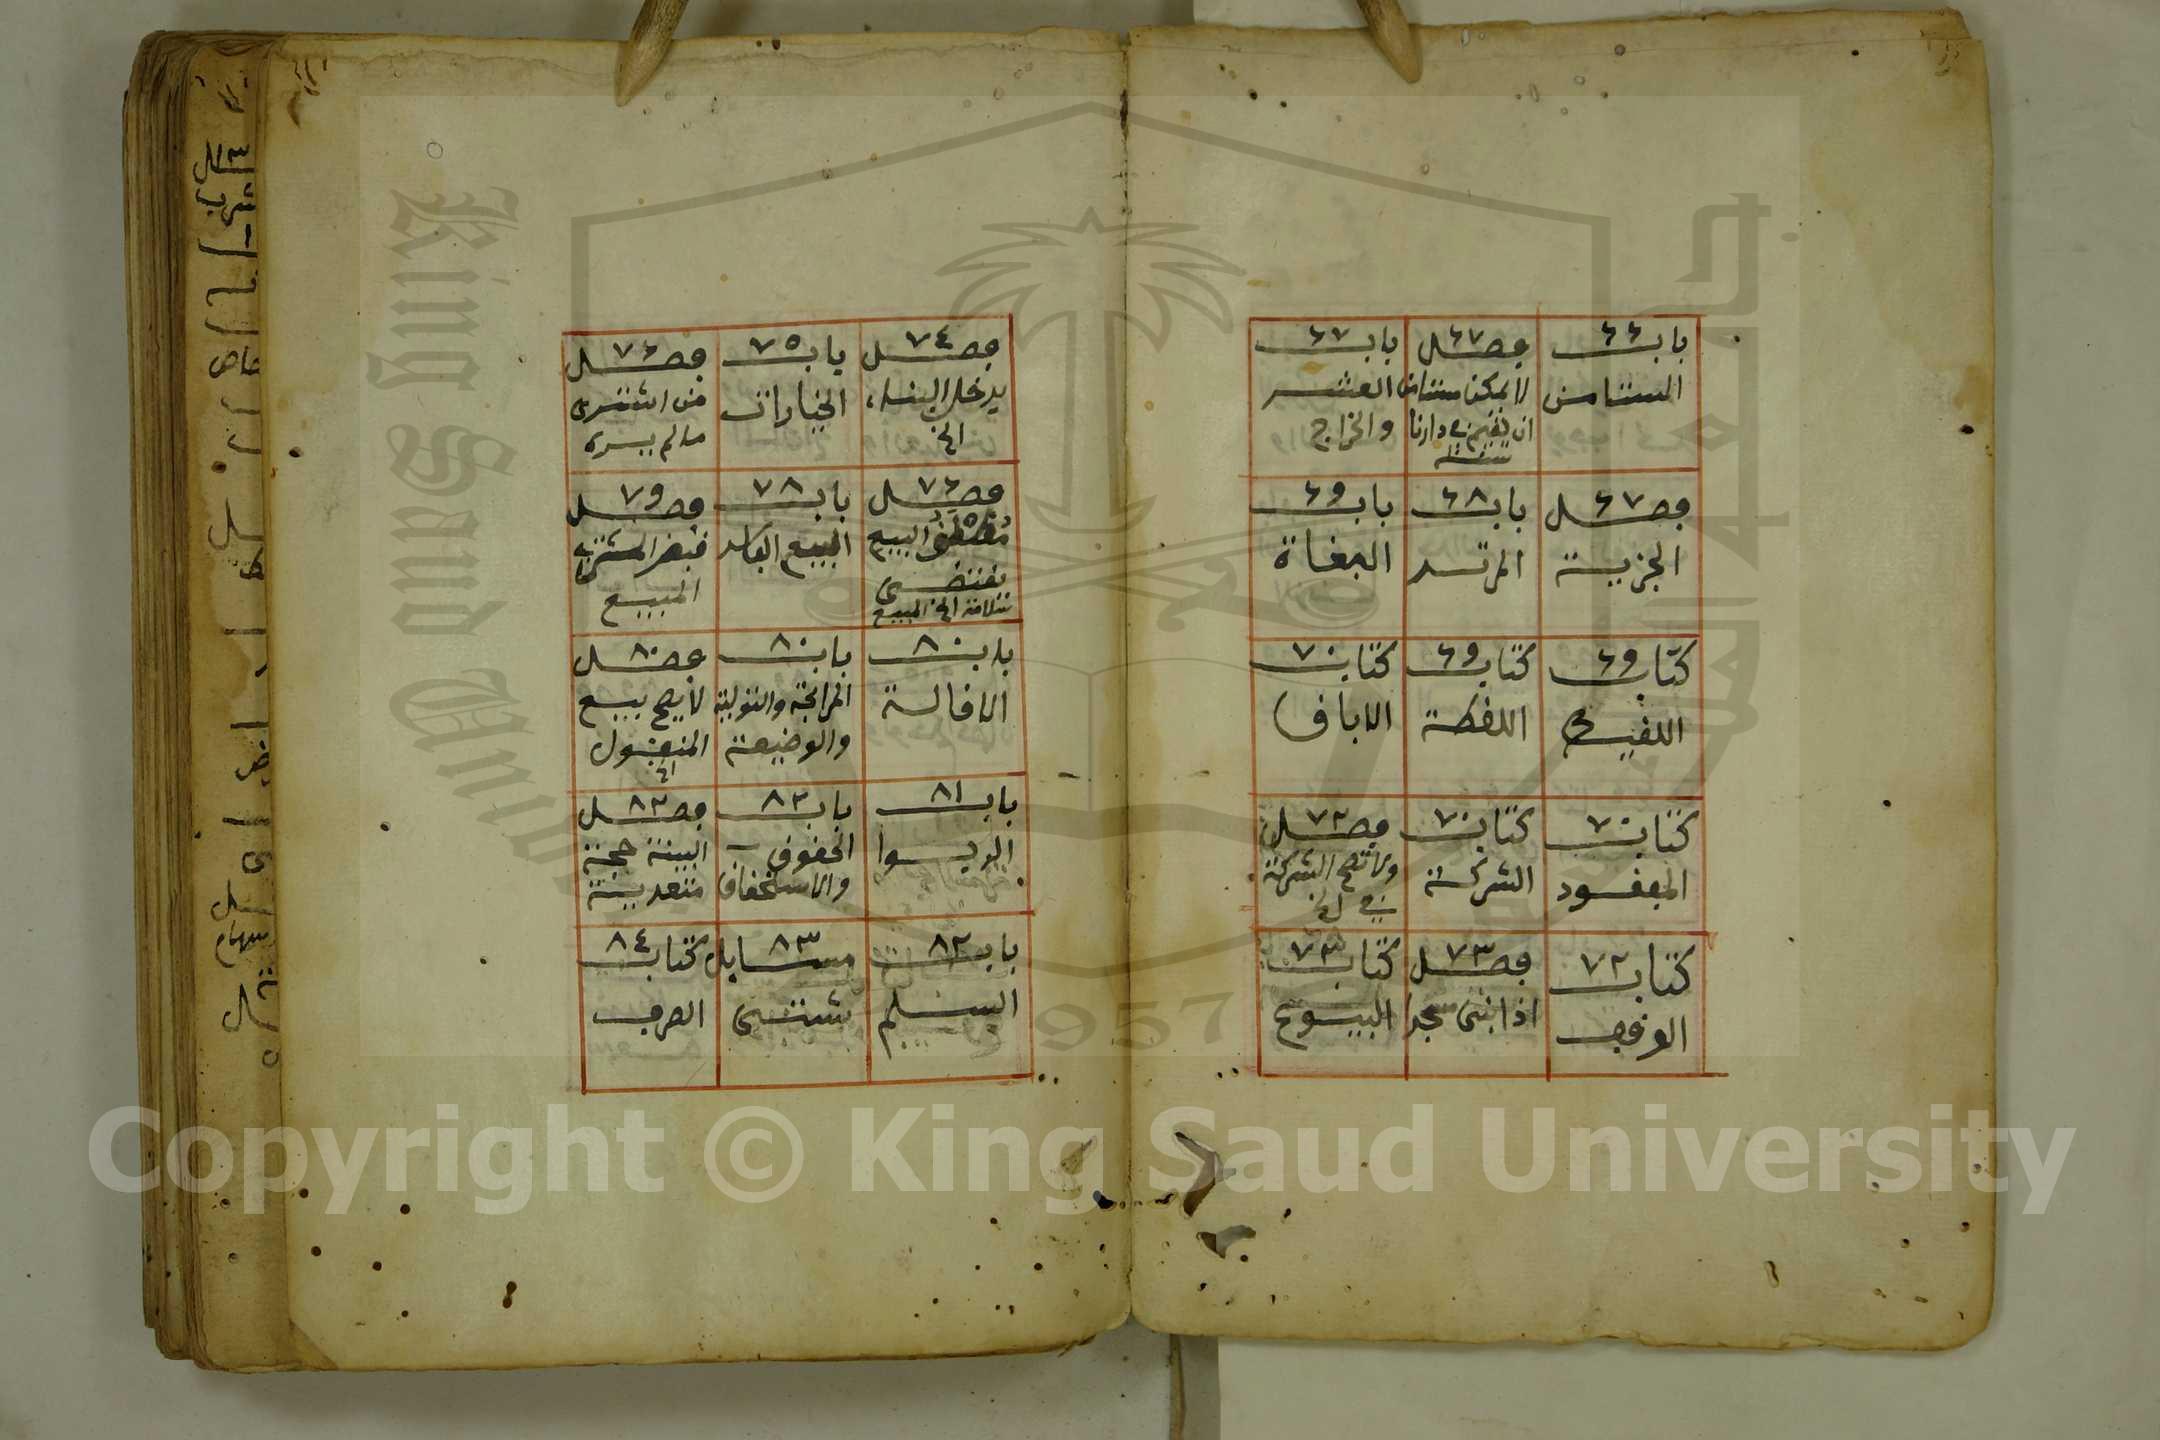 باب ٦٦
المستامن
فصل ٦٧
لا يمكن مستامن
ان يقيم في دارنا
سنة
باب ٦٧
العشر
والخراج
فصل ٦٧
الجزية
باب ٦٨
المرتد
باب ٦٩
البغاة
كتاب ٦٩
اللقيط
كتاب ٦٩
اللقطة
كتاب ٧٠
الاباق
كتاب ٧٠
المفقود
كتاب ٧٠
الشركة
فصل ٧٢
ولا تصح الشركة
في الخ
كتاب ٧٢
الوقف
فصل ٧٣
اذا بنى مسجدا
كتاب ٧٣
البيوع
فصل ٧٤
يدخل البناء
الخ
باب ٧٥
الخيارات
فصل ٧٦
من اشترى
ما لم يره
فصل ٧٦
مطلق البيع
يقتضى
سلامة الخ المبيع
باب ٧٨
البيع الفاسد
فصل ٧٩
قبض المشترى
المبيع
باب ٨٠
الاقالة
باب ٨٠
المرابحة والتولية
والوضيعة
فصل ٨٠
لا يصح بيع
المنقول
الخ
باب ٨١
الربوا
باب ٨٢
الحقوق
والاستحقاق
فصل ٨٢
البينة حجة
متعدية
باب ٨٢
السلم
مسايل ٨٣
شتى
كتاب ٨٤
الصرف
King Saud University
1957
Copyright © King Saud University